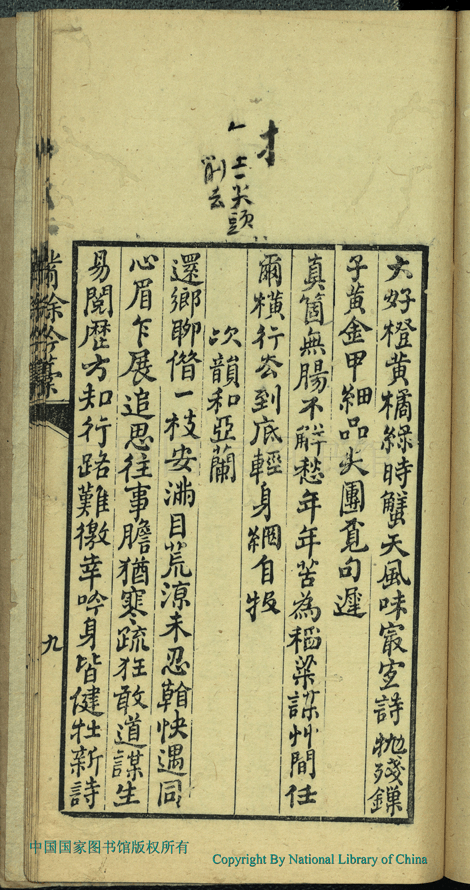 才
士尖頭
削去
大好橙黃橘綠時蟹天風味冣宜詩拋殘鏁
子黃金甲細品尖團覓句遲
真箇無腸不解愁年年苦為稻粱謀艸間任
爾橫行去到底輕身網自投
次韻和亞蘭
還鄉聊借一枝安滿目荒涼未忍看快遇同
心眉乍展追思往事膽猶寒疏狂敢道謀生
易閱歷方知行路難徼幸吟身皆健壯新詩
餘吟藁
九
中国国家图书馆版权所有
Copyright By National Library of China